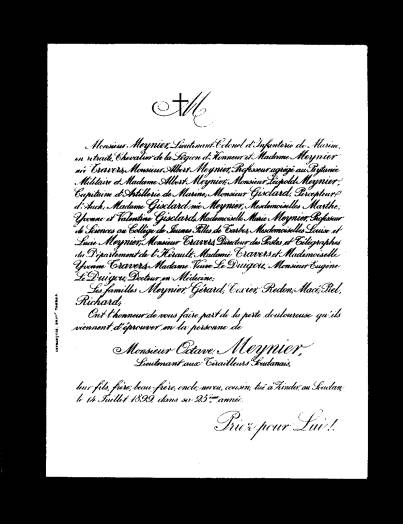 M
Monsieur Meynier, Lieutenant-Colonel d'Infanterie de Marine,
en retraite, Chevalier de la Légion d'Honneur et Madame Meynier
née Travers, Monsieur Albert Meynier, Professeur agrégé au Prytanée
Militaire et Madame Albert Meynier, Monsieur Léopold Meynier,
Capitaine d'Artillerie de Marine, Monsieur Gisclard, Percepteur
d'Auch, Madame Gisclard née Meynier, Mesdemoiselles Marthe,
Yvonne et Valentine Gisclard, Mademoiselle Marie Meynier, Professeur
de Sciences au Collège de Jeunes Filles de Tarbes, Mesdemoiselles Louise et
Lucie Meynier, Monsieur Travers Directeur des Postes et Télégraphes
du Département de l'Hérault, Madame Travers et Mademoiselle
Yvonne Travers, Madame Veuve Le Duigou, Monsieur Eugène
Le Duigou, Docteur en Médecine;
Les familles Meynier, Gérard, Redon, Macé, Bel,
Richard;
Ont l'honneur de vous faire part de la perte douloureuse qu'ils
viennent d'éprouver en la personne de
Monsieur Octave Meynier,
Lieutenant aux Tirailleurs Soudanais,
leur fils, frère, beau-frère, oncle, neveu, cousin, tué à Zinder, au Soudan,
le 14 Juillet 1899 dans sa 25ème année.
Priez pour Lui!